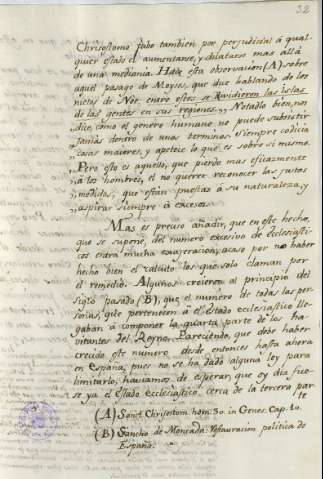 32
Chrisostomo tubo tambien por perjudicial á qual-
quier estado el aumentarse, y dilatarse mas allá
de una medianía. Hace esta observacion (A) sobre
aquel pasage de Moyses, que dice hablando de los
nietos de Noe: entre estos se dividieron las islas
de las gentes en sus regiones. ,, Notadlo bien, nos
,, dice, como el genero humano no puede subsistir
,, jamás dentro de unos terminos. Siempre codicia
,, cosas maiores, y apetece lo que es sobre si mismo.
,, Pero esto es aquello, que pierde mas eficazmente
,, á los hombres, el no querer reconocer las justas
,, medidas, que están puestas á su naturaleza, y
,, aspirar siempre á excesos.
Mas es preciso añadir, que en este hecho,
que se supone, del numero excesivo de Ecclesiasti-
cos entra mucha exageracion, acaso por no haber
hecho bien el calculo los que solo claman por
el remedio. Algunos creieron al principio del
siglo pasado (B), que el numero de todas las per-
sonas, que pertenecen á el Estado ecclesiastico lle-
gaban á componer la quarta parte de los ha-
vitantes del Reyno. Pareciendo, que debe haber
crecido este numero desde entonces hasta ahora
en España, pues no se ha dado alguna ley para
limitarlo, haviamos de esperar que oy dia fue-
se ya el Estado Ecclesiastico cerca de la tercera par-
te
(A) Sanct. Chrisostom. hom. 30. in Genes. Cap. 10.
(B) Sancho de Moncada: restauracion politica de
España.